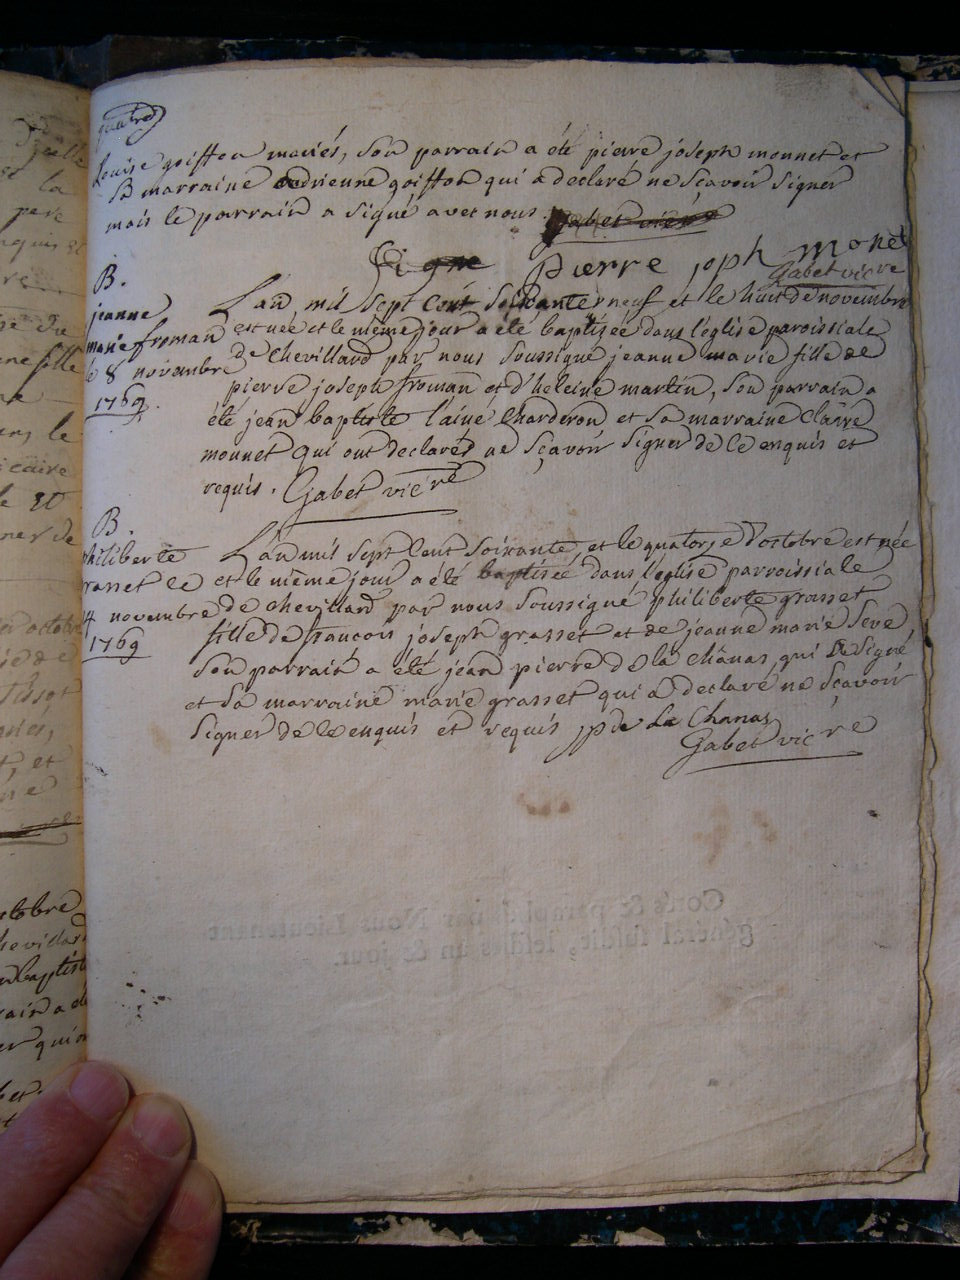 Louise goiffon mariés, son parrain a été pierre joseph monnet et
sa marraine andrienne goiffon qui a declaré ne sçavoir signer
mais le parrain a signé avec nous. Gabet vicre
Signe Pierre joph monet
Gabet vicre
B.
jeanne
marie froman
le 8 novembre
1769.
L'an mil sept cent soixante neuf et le huit de novembre
est née et le même jour a été baptisée dans l'église paroissiale
de Chevillard par nous soussigné jeanne marie fille de
pierre joseph froman et d'heleine martin, son parrain a
été jean baptiste l'ainé Charderon et sa marraine Claire
monnet qui ont declarés ne sçavoir signer de ce enquis et
requis. Gabet vicre
B.
philiberte
grasset le
14 novembre
1769
L'an mil sept cent soixante, et le quatorze d'octobre est née
et le même jour a été baptisée dans l'église parroissiale
de chevillard par nous soussigné philiberte grasset
fille de francois joseph grasset et de jeanne marie Seve
son parrain a été jean pierre de la chanas, qui a signé
et sa marraine marie grasset qui a declaré ne sçavoir
signer de ce enquis et requis jpre De La Chanas
Gabet vicre
Cotés & paraphés par Nous Lieutenant
général susdit, lesdits an & jour.